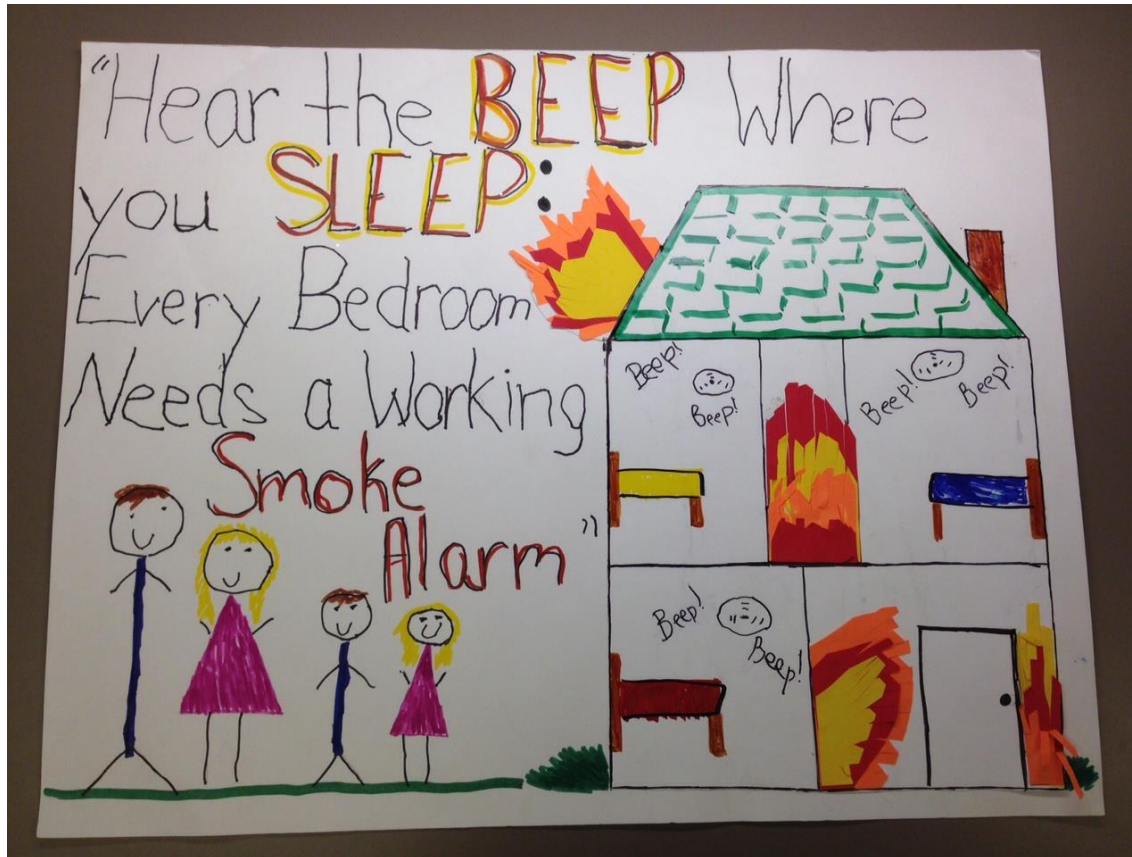 "Hear the BEEP Where
you SLEEP:
Every Bedroom
Needs a Working
Smoke
Alarm"
Beep!
Beep!
Beep!
Beep!
Beep!
Beep!